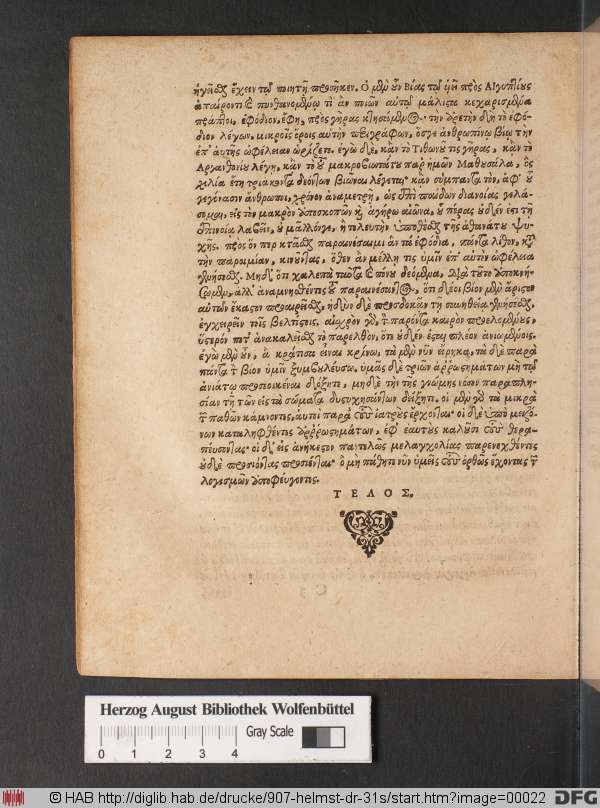 ἡγεῖσθαι ἔχειν τῷ ποιητῇ προσῆκεν. Ὁ μὲν οὖν Βίας τῷ υἱεῖ πρὸς Αἰγυπτίους
ἀπαίροντι καὶ πυνθανομένῳ τί ἂν ποιῶν αὐτῷ μάλιστα κεχαρισμένα
πράττοι, ἐφόδιον, ἔφη, πρὸς γῆρας κτησάμενος· τὴν ἀρετὴν δὴ τὸ ἐφό-
διον λέγων, μικροῖς ὅροις αὐτὴν περιγράφων, ὅς γε ἀνθρωπίνῳ βίῳ τὴν
ἀπ' αὐτῆς ὠφέλειαν ὡρίζετο. ἐγὼ δὲ, κἂν τὸ Τιθωνοῦ τις γῆρας, κἂν τὸ
Ἀργανθονίου λέγῃ, κἂν τὸ τοῦ μακροβιωτάτου παρ' ἡμῶν Μαθουσάλα, ὃς
χίλια ἔτη τριάκοντα δεόντων βιῶναι λέγεται, κἂν σύμπαντα τὸν, ἀφ' οὗ
γεγόνασιν ἄνθρωποι, χρόνον ἀναμετρῇ, ὡς ἐπὶ παίδων διανοίας γελά-
σομαι, εἰς τὸν μακρὸν ἀποσκοπῶν καὶ ἀγήρω αἰῶνα, οὗ πέρας οὐδέν ἐστι τῇ
ἐπινοίᾳ λαβεῖν, οὐ μᾶλλόν γε, ἢ τελευτὴν ὑποθέσθαι τῆς ἀθανάτου ψυ-
χῆς. πρὸς ὅν περ κτᾶσθαι παραινέσαιμι ἂν τὰ ἐφόδια, πάντα λίθον, κατὰ
τὴν παροιμίαν, κινοῦντας, ὅθεν ἂν μέλλῃ τις ὑμῖν ἐπ' αὐτὸν ὠφέλεια
γενήσεσθαι. Μηδ' ὅτι χαλεπὰ ταῦτα καὶ πόνου δεόμενα, διὰ τοῦτο ἀποκνή-
σωμεν, ἀλλ' ἀναμνησθέντες τοῦ παραινέσαντος, ὅτι δέοι βίον μὲν ἄριστον
αὐτὸν ἕκαστον προαιρεῖσθαι, ἡδὺν δὲ προσδοκᾶν τῇ συνηθείᾳ γενήσεσθαι,
ἐγχειρεῖν τοῖς βελτίστοις. αἰσχρὸν γὰρ, τὸν παρόντα καιρὸν προεμένους,
ὕστερόν ποτ' ἀνακαλεῖσθαι τὸ παρελθὸν, ὅτε οὐδὲν ἔσται πλέον ἀνιωμένοις.
ἐγὼ μὲν οὖν, ἃ κράτιστα εἶναι κρίνω, τὰ μὲν νῦν εἴρηκα, τὰ δὲ παρὰ
πάντα τὸν βίον ὑμῖν ξυμβουλεύσω. ὑμεῖς δὲ τριῶν ἀρρωστημάτων μὴ τῷ
ἀνιάτῳ προσεοικέναι δόξητε, μηδὲ τῇ τῆς γνώμης νόσον παραπλη-
σίαν τῇ τῶν εἰς τὰ σώματα δυστυχησάντων δείξητε. οἱ μὲν γὰρ τὰ μικρὰ
τῶν παθῶν κάμνοντες, αὐτοὶ παρὰ τοὺς ἰατροὺς ἔρχονται· οἱ δὲ ὑπὸ μειζό-
νων καταληφθέντες ἀρρωστημάτων, ἐφ' ἑαυτοὺς καλοῦσι τοὺς θερα-
πεύσοντας· οἱ δ' εἰς ἀνήκεστον παντελῶς μελαγχολίας παρενεχθέντες
οὐδὲ προσιόντας προσίενται· ὃ μὴ πάθητε νῦν ὑμεῖς τοὺς ὀρθῶς ἔχοντας τῶν
λογισμῶν ἀποφεύγοντες.
ΤΕΛΟΣ.
Herzog August Bibliothek Wolfenbüttel
Gray Scale
0 1 2 3 4
© HAB http://diglib.hab.de/drucke/907-helmst-dr-31s/start.htm?image=00022
DFG